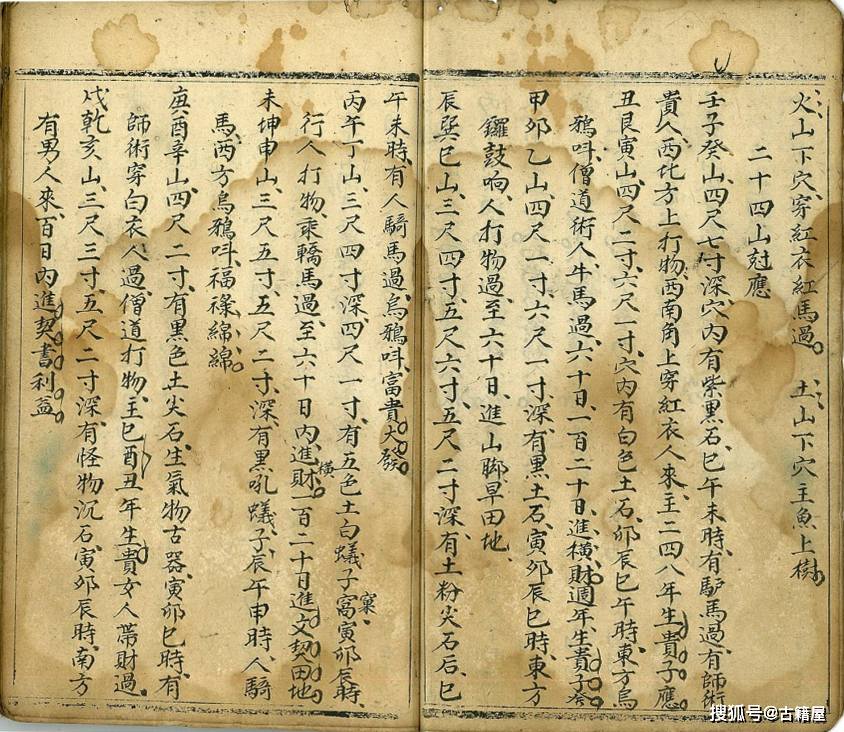 火山下穴、穿紅衣紅馬過。土山下穴主魚上樹
二十四山尅應
壬子癸山、四尺七寸深、穴內有紫黑石、巳午未時、有馿馬過、有師術
貴人西北方上打物、西南角上穿紅衣人來、主二四八年生貴子應
丑艮寅山、四尺二寸、六尺一寸、穴內有白色土石、卯辰巳午時、東方烏
鴉呌、僧道術人牛馬過、六十日、一百二十日、進橫財、週年、生貴子
甲卯乙山、四尺一寸、六尺一寸、深、有黑土石、寅卯辰巳時、東方
鑼鼓响、人打物過、至六十日、進山腳旱田地、
辰巽巳山、三尺四寸、五尺六寸、五尺二寸深、有土粉尖石后、巳
午未時、有人騎馬過、烏鴉呌、富貴大發
丙午丁山、三尺四寸深、四尺一寸、有五色土白蟻子窩窠、寅卯辰時、
行人打物、乘轎馬過、至六十日內、進橫財、一百二十日進文契田地
未坤申山、三尺五寸、五尺二寸、深、有黑吼蟻子、辰午申時、人騎
馬、西方烏鴉呌、福祿綿綿
庚酉辛山、四尺二寸、有黑色土尖石、生氣物古器、寅卯巳時、有
師術穿白衣人過、僧道打物、主巳酉丑年生貴、女人帶財過、
戌乾亥山、三尺三寸、五尺二寸深、有怪物沉石、寅卯辰時、南方
有男人來、百日內進契書利益
搜狐号@古籍屋